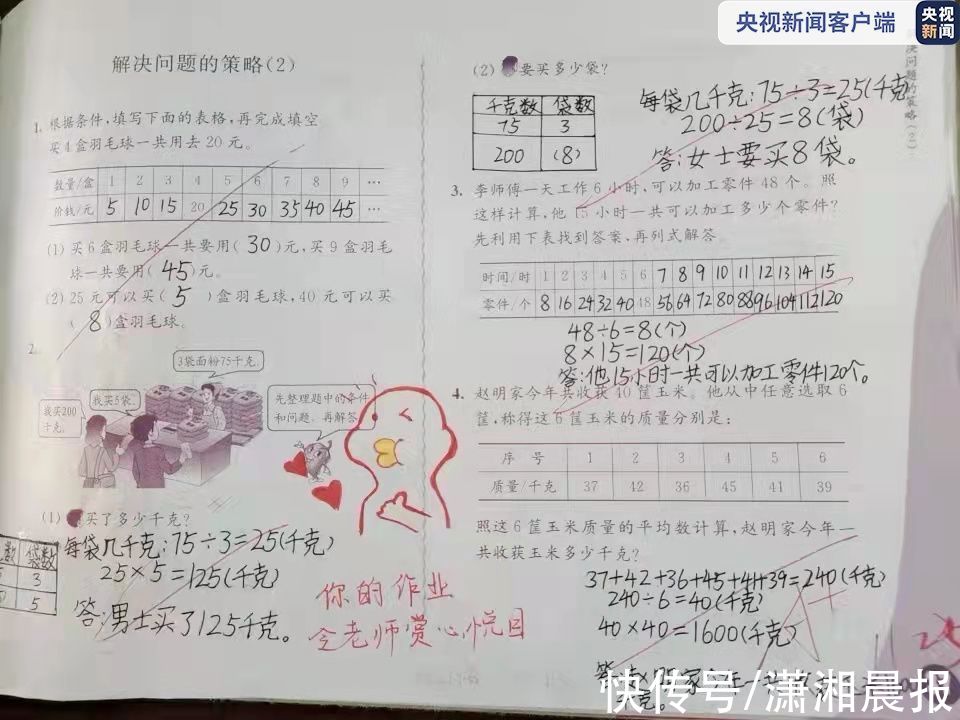 央视新闻客户端
央视
新闻
解决问题的策略(2)
1. 根据条件,填写下面的表格,再完成填空
买4盒羽毛球一共用去20元。
数量/盒 1 2 3 4 5 6 7 8 9 …
价钱/元 5 10 15 20 25 30 35 40 45 …
(1) 买6盒羽毛球一共要用(30)元,买9盒羽毛
球一共要用(45)元。
(2) 25元可以买(5)盒羽毛球,40元可以买
(8)盒羽毛球。
2.
3袋面粉75千克。
我买200
千克。
我买5袋。
先整理题中的条件
和问题,再解答
(1) 买了多少千克?
每袋几千克:75÷3=25(千克)
25×5=125(千克)
数 袋数
3
5
答:男士买了125千克。
你的作业
令老师赏心悦目
(2) 要买多少袋?
千克数 袋数
75 3
200 (8)
每袋几千克:75÷3=25(千克)
200÷25=8(袋)
答:女士要买8袋。
决问题的策略(2)
3. 李师傅一天工作6小时,可以加工零件48个。照
这样计算,他15小时一共可以加工多少个零件?
先利用下表找到答案,再列式解答
时间/时 1 2 3 4 5 6 7 8 9 10 11 12 13 14 15
零件/个 8 16 24 32 40 48 56 64 72 80 88 96 104 112 120
48÷6=8(个)
8×15=120(个)
答:他15小时一共可以加工零件120个。
4. 赵明家今年共收获40筐玉米。他从中任意选取6
筐,称得这6筐玉米的质量分别是:
序号 1 2 3 4 5 6
质量/千克 37 42 36 45 41 39
照这6筐玉米质量的平均数计算,赵明家今年一
共收获玉米多少千克?
37+42+36+45+41+39=240(千克)
240÷6=40(千克)
40×40=1600(千克)
A+
快传号/潇湘晨报